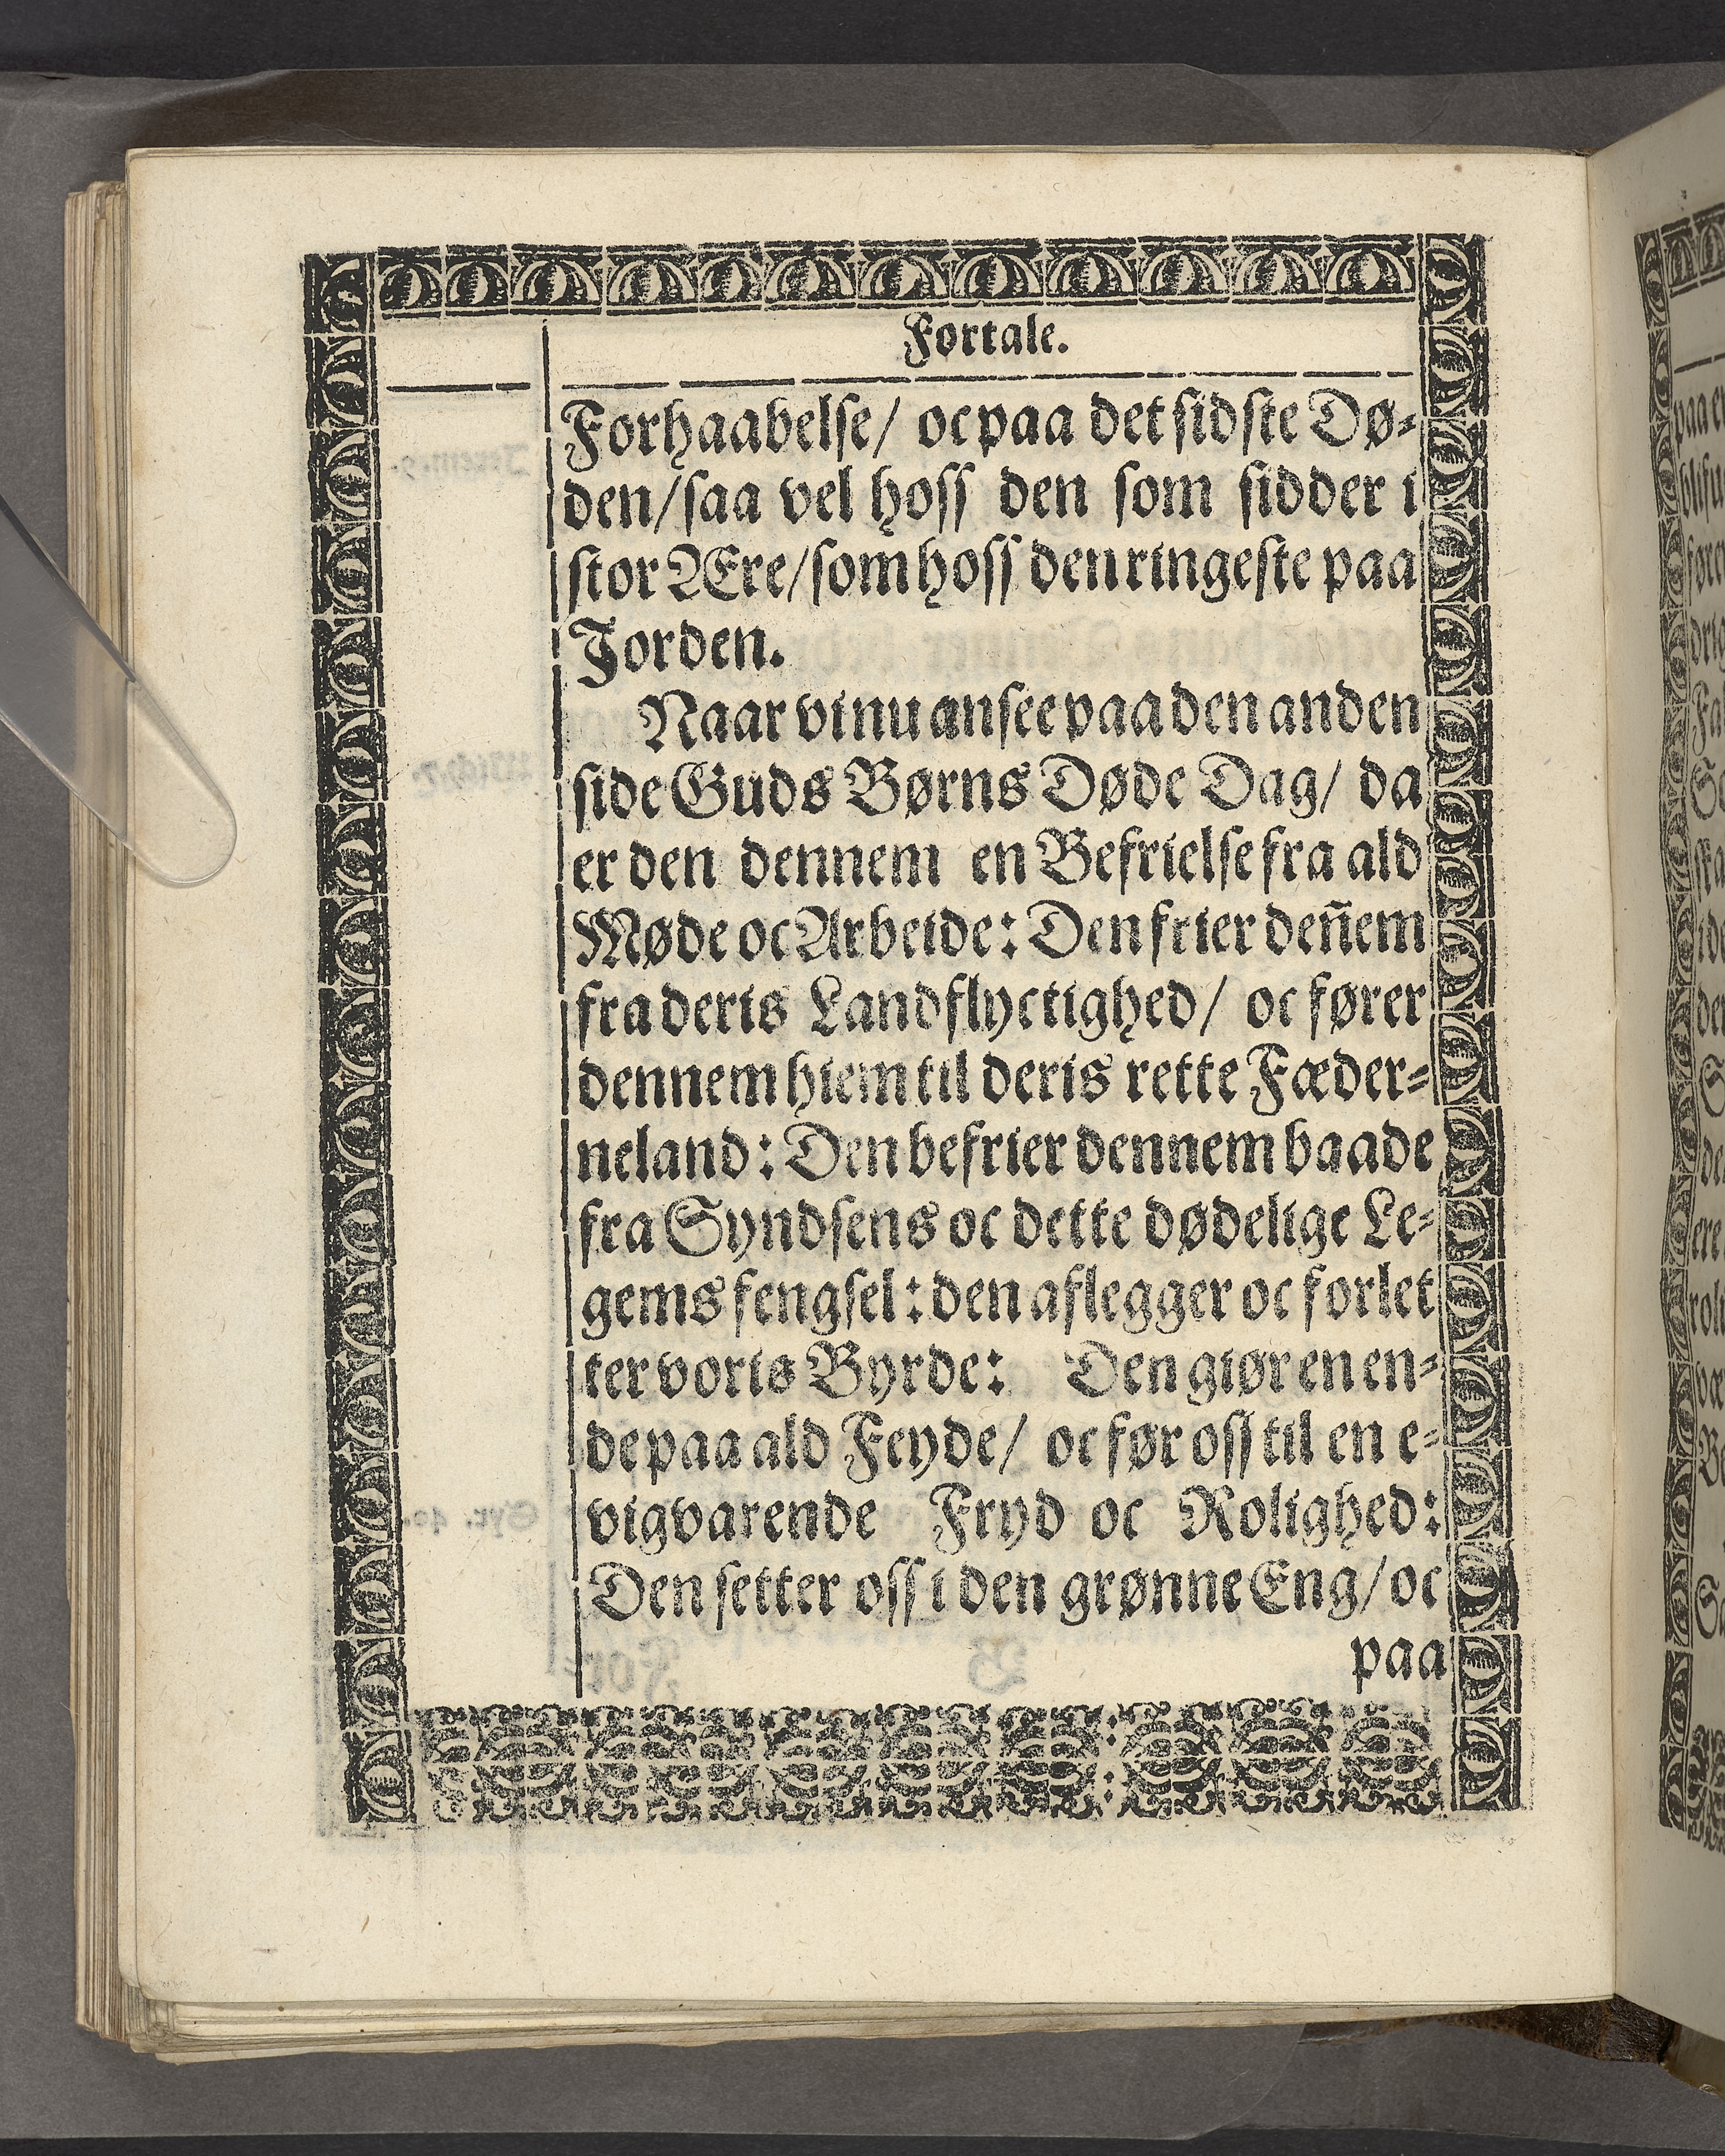 Fortale.
Forhaabelse/ oc paa det sidste Dø-
den/ saa vel hoss den som sidder i
stor Ære/ som hoss den ringeste paa
Jorden.
Naar vi nu ansee paa den anden
side Guds Børns Døde Dag/ da
er den dennem en Befrielse fra ald
Møde oc Arbeide: Den frier deñem
fra deris Landflyctighed/ oc fører
dennem hiem til deris rette Fæder-
neland: Den befrier dennem baade
fra Syndsens oc dette dødelige Le-
gems fengsel: den aflegger oc forlet
ter voris Byrde: Den giør en en-
de paa ald Feyde/ oc før oss til en e-
vigvarende Fryd oc Rolighed:
Den setter oss i den grønne Eng/ oc
paa